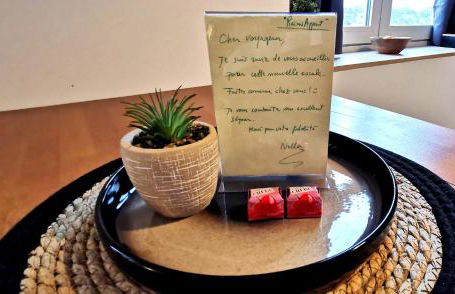 "ReimsAppart"
Cher voyageur,
Je suis ravie de vous accueillir
pour cette nouvelle escale.
Faites comme chez vous !
Je vous souhaite un excellent
séjour.
Merci pour votre fidélité